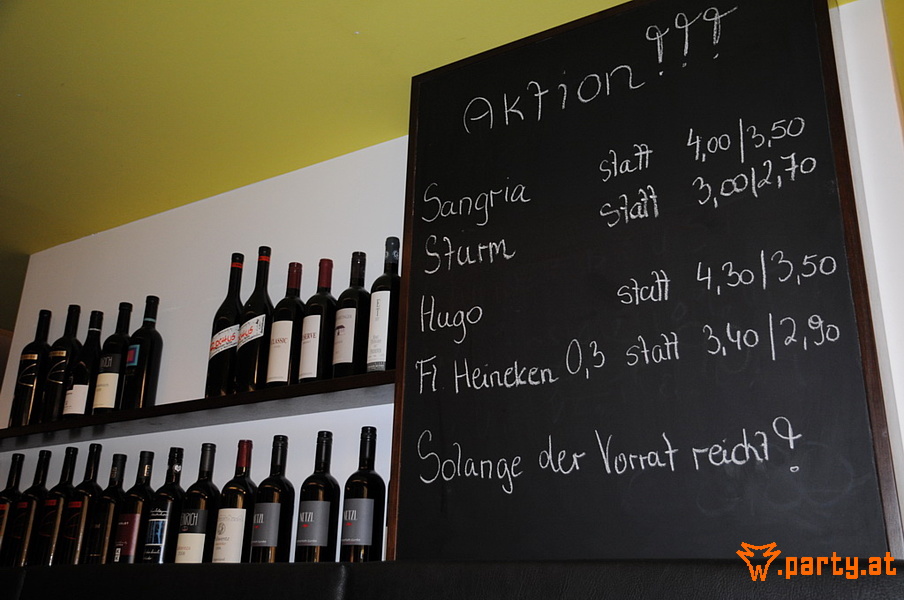 Aktion!!!
Sangria statt 4,00/3,50
Sturm statt 3,00/2,70
Hugo statt 4,30/3,50
Fl. Heineken 0,3 statt 3,40/2,90
Solange der Vorrat reicht!
CLASSIC
w.party.at